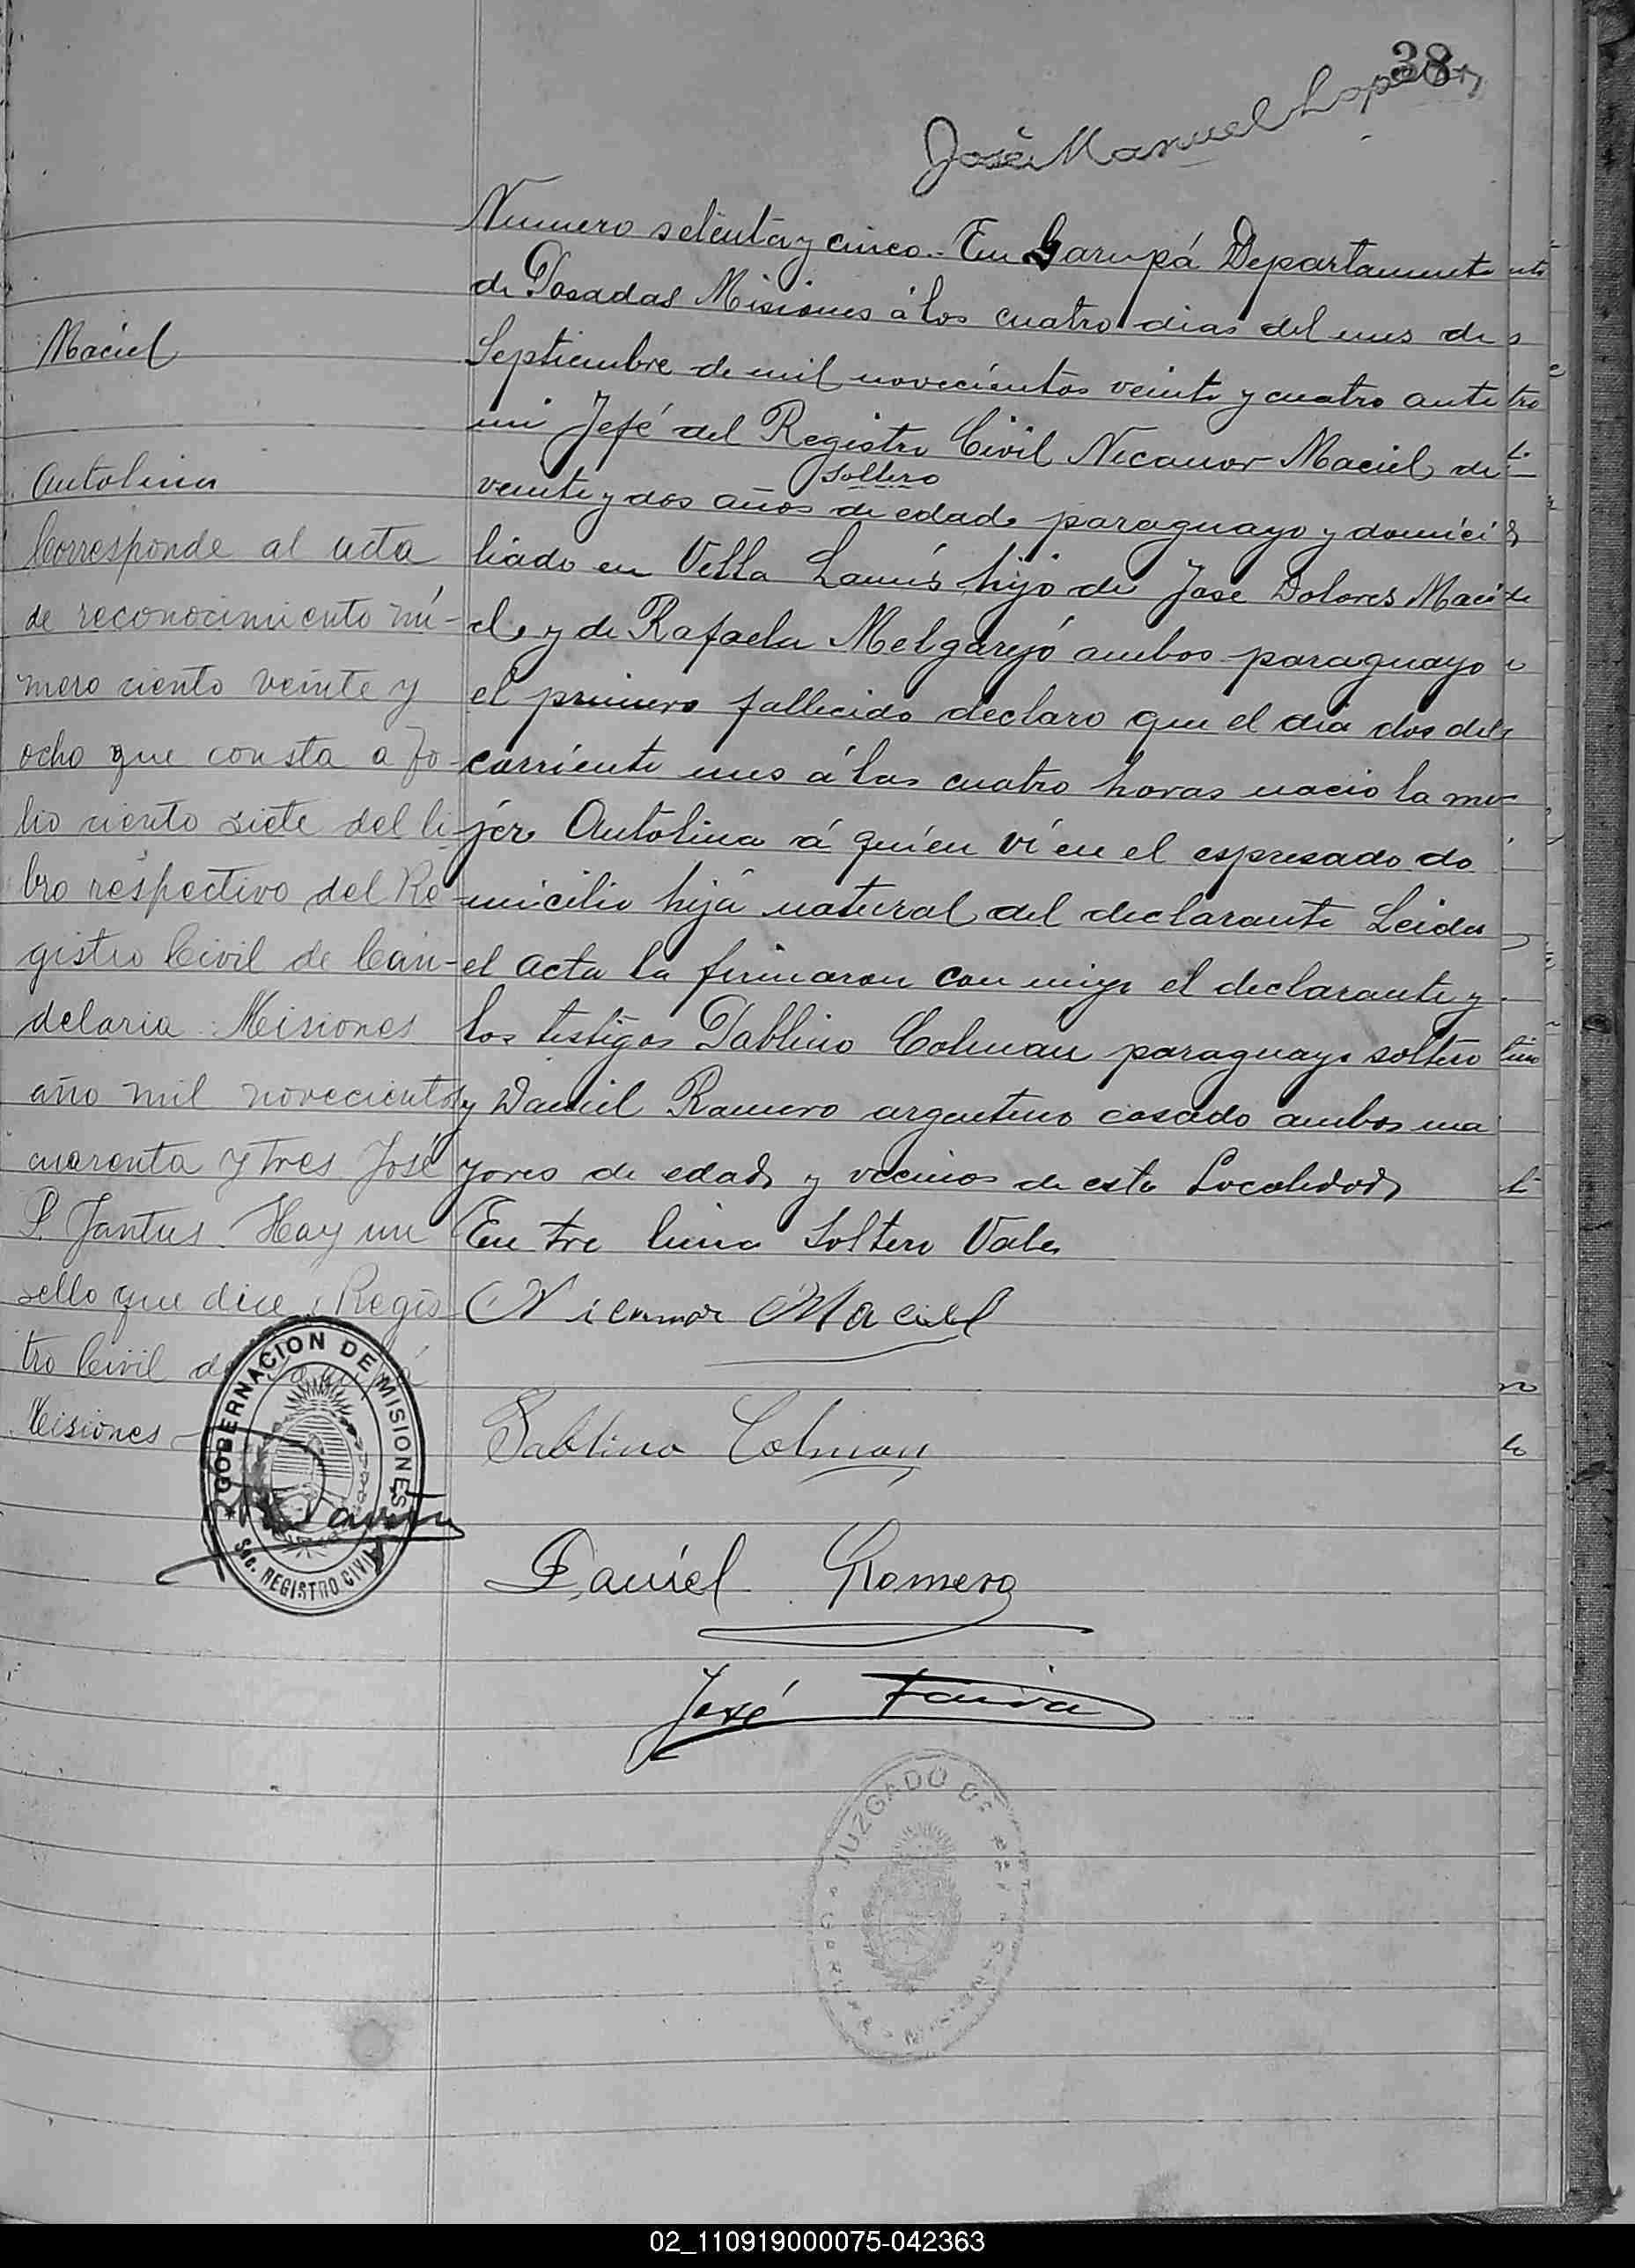 38
José Manuel Lopez
Numero setenta y cinco.- En Garupá Departamento
de Posadas Misiones á los cuatro dias del mes de
Septiembre de mil novecientos veinte y cuatro ante
mi Jefé del Registro Civil Nicanor Maciel de
soltero
veinte y dos años de edad paraguayo y domici
liado en Villa Lanús hijo de Jose Dolores Maci
el y de Rafaela Melgarejo ambos paraguayo
el primero fallecido declaro que el dia dos del
corriente mes á las cuatro horas nacio la mu
jer Antolina á quién ví en el espresado do
micilio hija natural del declarante Leida
el acta la firmaron con migo el declarante y
los testigos Pablino Colman paraguayo soltero
y Daniel Romero argentino casado ambos ma
yores de edad y vecinos de esta Localidad
En tre linia Soltero Vale
Nicanor Maciel
Pablino Colman
Daniel Romero
José
Maciel
Antolina
Corresponde al acta
de reconocimiento nú-
mero ciento veinte y
ocho que consta a fo-
lio ciento siete del li
bro respectivo del Re
gistro Civil de Can-
delaria Misiones
año mil novecientos
cuarenta y tres José
P. Jantus. Hay un
sello que dice: Regis-
tro Civil de
Misiones
GOBERNACION DE MISIONES
Sec. REGISTRO CIVIL
JUZGADO DE
02_110919000075-042363